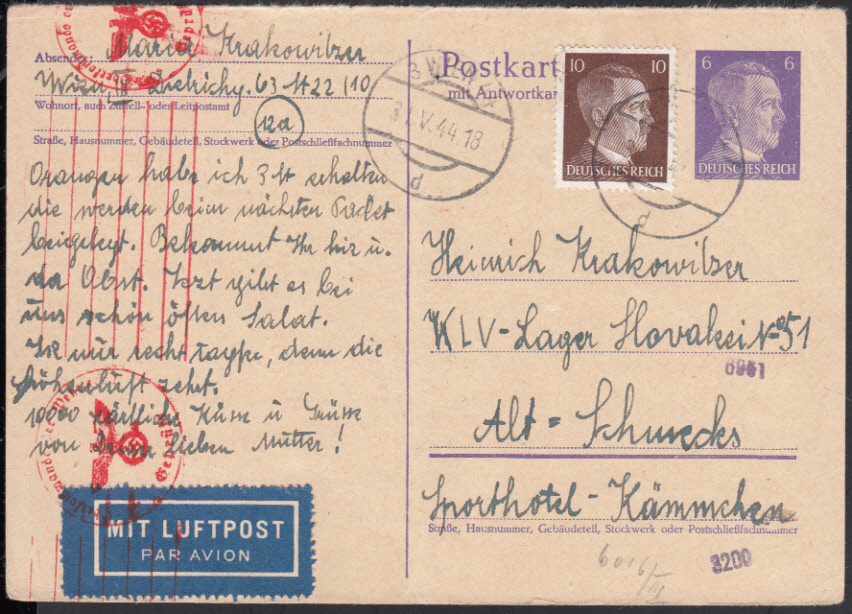 Absender: Maria Krakowitzer
Wien III Dietrichg. 63 14 22/10
Wohnort, auch Zustell- oder Leitpostamt
12a
Straße, Hausnummer, Gebäudeteil, Stockwerk oder Postschließfachnummer
Orangen habe ich 3 St erhalten
die werden beim nächsten Packet
beigelegt. Bekommt Ihr hie u.
da Obst. Jezt gibt es bei
uns schön öfters Salat.
Iß nur recht, denn die
Höhenluft zehrt.
10000 zärtliche Küsse u Grüsse
von Deiner lieben Mutter!
MIT LUFTPOST
PAR AVION
Postkart
mit Antwortkar
WIEN
31.V.44.18
d
10 10
DEUTSCHES REICH
6 6
DEUTSCHES REICH
d
Heinrich Krakowitzer
KLV-Lager Slovakei No 51
6951
Alt-Schmecks
Sporthotel-Kämmchen
Straße, Hausnummer, Gebäudeteil, Stockwerk oder Postschließfachnummer
3200